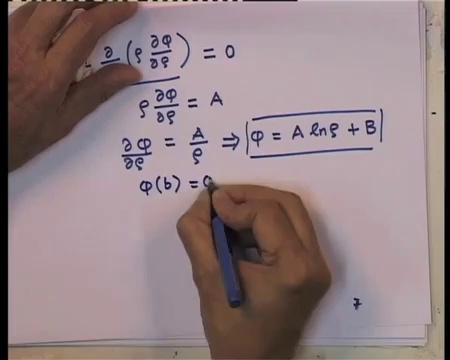 ∂/∂ (ρ ∂φ/∂ρ) = 0
ρ ∂φ/∂ρ = A
∂φ/∂ρ = A/ρ ⇒ φ = A lnρ + B
φ(b) =
7